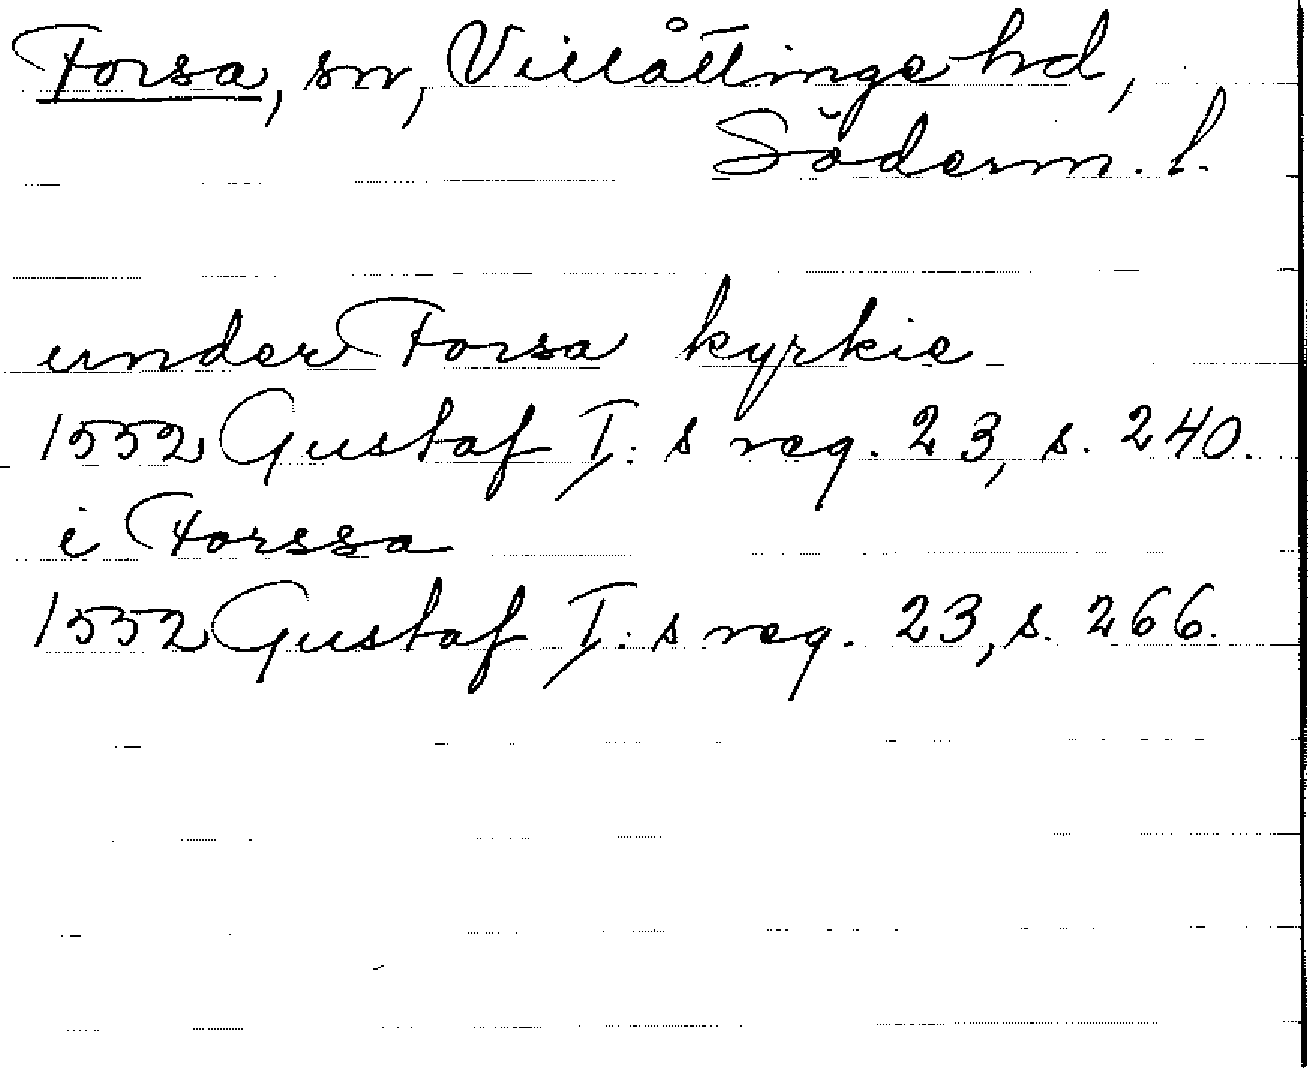 Forsa, sn, Villåttinge hd,
Söderm. l.
under Forsa kyrkie
1552 Gustaf I:s reg. 23, s. 240.
i Forssa
1552 Gustaf I:s reg. 23, s. 266.